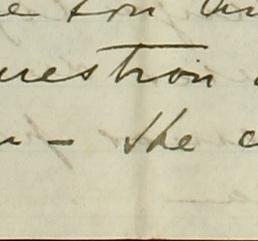 e son
uestion
– the c